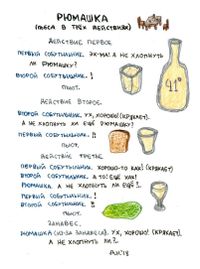 РЮМАШКА
(ПЬЕСА В ТРЁХ ДЕЙСТВИЯХ)
ДЕЙСТВИЕ ПЕРВОЕ.
ПЕРВЫЙ СОБУТЫЛЬНИК. ЭХ-МА! А НЕ ХЛОПНУТЬ
ЛИ РЮМАШКУ?
ВТОРОЙ СОБУТЫЛЬНИК!
ПЬЮТ.
41°
ДЕЙСТВИЕ ВТОРОЕ.
ВТОРОЙ СОБУТЫЛЬНИК. УХ, ХОРОШО! (КРЯКАЕТ)
А НЕ ХЛОПНУТЬ ЛИ ЕЩЁ РЮМАШКУ?
ПЕРВЫЙ СОБУТЫЛЬНИК!
ПЬЮТ.
ДЕЙСТВИЕ ТРЕТЬЕ.
ПЕРВЫЙ СОБУТЫЛЬНИК. ХОРОШО-ТО КАК! (КРЯКАЕТ)
ВТОРОЙ СОБУТЫЛЬНИК. А ТО! ЕЩЁ КАК!
РЮМАШКА. А НЕ ХЛОПНУТЬ ЛИ ЕЩЁ!?
ПЕРВЫЙ СОБУТЫЛЬНИК!
ВТОРОЙ СОБУТЫЛЬНИК!
ПЬЮТ.
ЗАНАВЕС.
РЮМАШКА (ИЗ-ЗА ЗАНАВЕСА). УХ, ХОРОШО! (КРЯКАЕТ)
А НЕ ХЛОПНУТЬ ЛИ?..